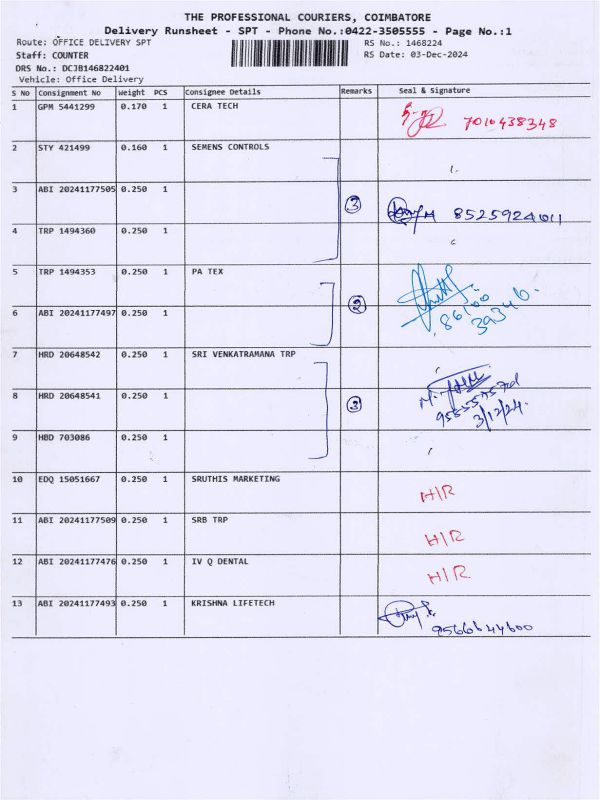 THE PROFESSIONAL COURIERS, COIMBATORE
Delivery Runsheet - SPT - Phone No.:0422-3505555 - Page No.:1
Route: OFFICE DELIVERY SPT
RS No.: 1468224
Staff: COUNTER
RS Date: 03-Dec-2024
DRS No.: DCJB146822401
Vehicle: Office Delivery
S No Consignment No Weight PCS Consignee Details Remarks Seal & Signature
1 GPM 5441299 0.170 1 CERA TECH 7010438348
2 STY 421499 0.160 1 SEMENS CONTROLS
3 ABI 20241177505 0.250 1 3 8525924011
4 TRP 1494360 0.250 1
5 TRP 1494353 0.250 1 PA TEX
6 ABI 20241177497 0.250 1 2 86100
39346.
7 HRD 20648542 0.250 1 SRI VENKATRAMANA TRP
8 HRD 20648541 0.250 1 3
3/12/24.
9 HBD 703086 0.250 1
10 EDQ 15051667 0.250 1 SRUTHIS MARKETING H/R
11 ABI 20241177509 0.250 1 SRB TRP H/R
12 ABI 20241177476 0.250 1 IV Q DENTAL H/R
13 ABI 20241177493 0.250 1 KRISHNA LIFETECH
9566644600